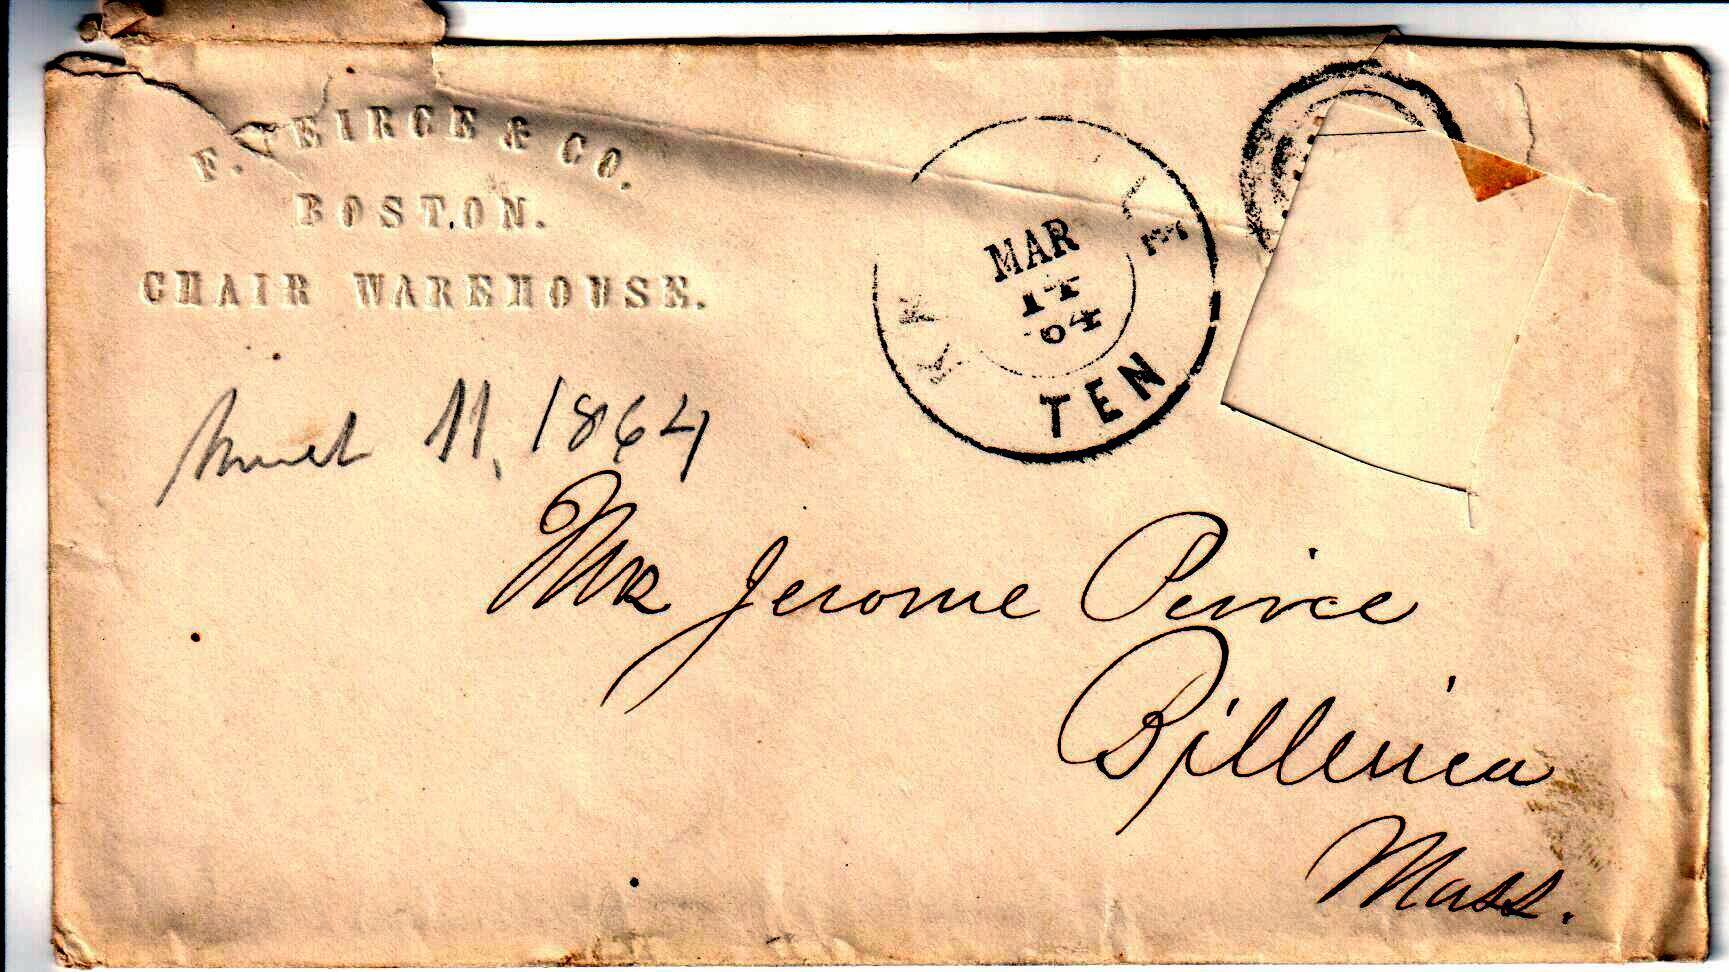 F. PEIRCE & CO.
BOSTON.
CHAIR WAREHOUSE.
MAR
17
64
TEN
March 11, 1864
Mr Jerome Peirce
Billerica
Mass.